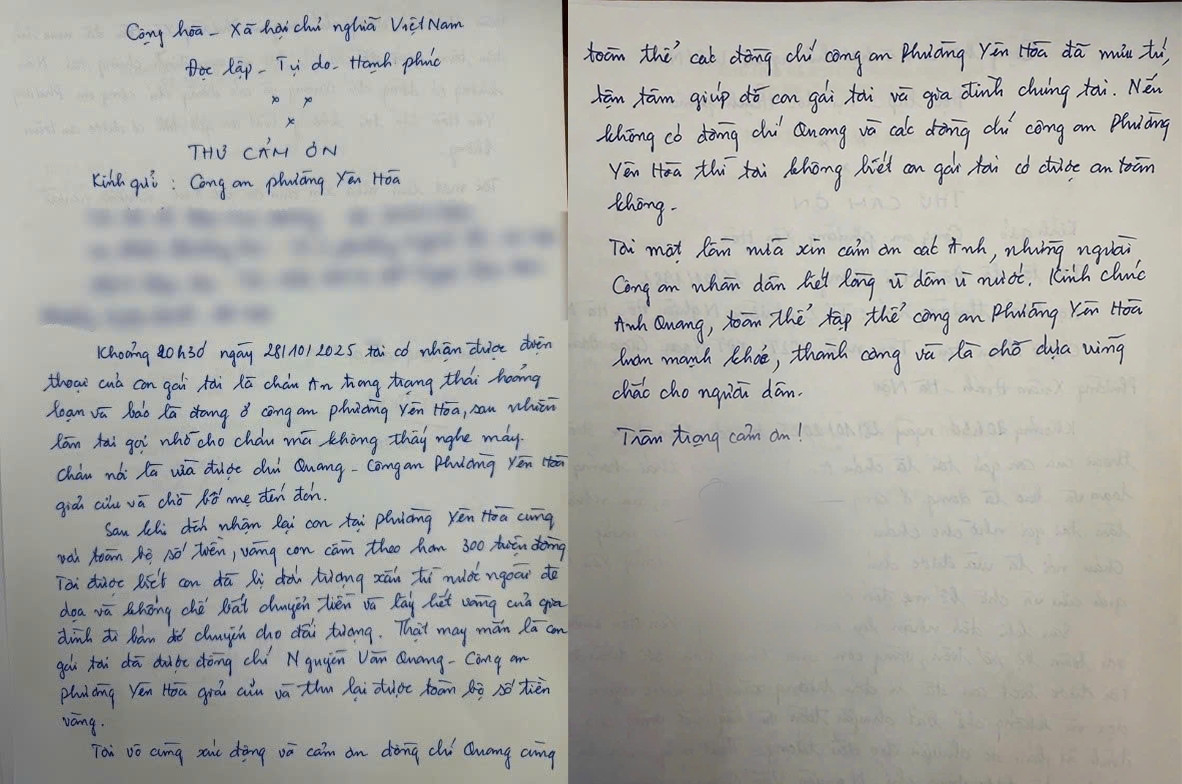 Cộng hòa - Xã hội chủ nghĩa Việt Nam
Độc lập - Tự do - Hạnh phúc
x x
x
THƯ CẢM ƠN
Kính gửi : Công an phường Yên Hòa
Khoảng 20h30 ngày 28/10/2025 tôi có nhận được điện
thoại của con gái tôi là cháu An trong trạng thái hoảng
loạn và báo là đang ở công an phường Yên Hòa, sau nhiều
lần tôi gọi nhỡ cho cháu mà không thấy nghe máy.
Cháu nói là vừa được chú Quang - Công an Phường Yên Hòa
giải cứu và chờ bố mẹ đến đón.
Sau khi đến nhận lại con tại phường Yên Hòa cùng
với toàn bộ số tiền, vàng con cầm theo hơn 300 triệu đồng
Tôi được biết con đã bị đối tượng xấu từ nước ngoài đe
dọa và khống chế bắt chuyển tiền và lấy hết vàng của gia
đình đi bán để chuyển cho đối tượng. Thật may mắn là con
gái tôi đã được đồng chí Nguyễn Văn Quang - Công an
phường Yên Hòa giải cứu và thu lại được toàn bộ số tiền
vàng.
Tôi vô cùng xúc động và cảm ơn đồng chí Quang cùng
toàn thể các đồng chí công an Phường Yên Hòa đã mưu trí,
tận tâm giúp đỡ con gái tôi và gia đình chúng tôi. Nếu
không có đồng chí Quang và các đồng chí công an Phường
Yên Hòa thì tôi không biết con gái tôi có được an toàn
không.
Tôi một lần nữa xin cảm ơn các Anh, những người
Công an nhân dân hết lòng vì dân vì nước. Kính chúc
Anh Quang, toàn thể tập thể công an Phường Yên Hòa
luôn mạnh khỏe, thành công và là chỗ dựa vững
chắc cho người dân.
Trân trọng cảm ơn!